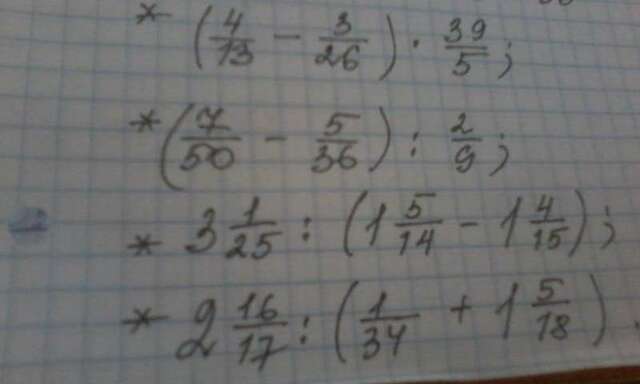 * (4/13 - 3/26) · 39/5;
* (7/50 - 5/36) : 2/9;
* 3 1/25 : (1 5/14 - 1 4/15);
* 2 16/17 : (1/34 + 1 5/18).